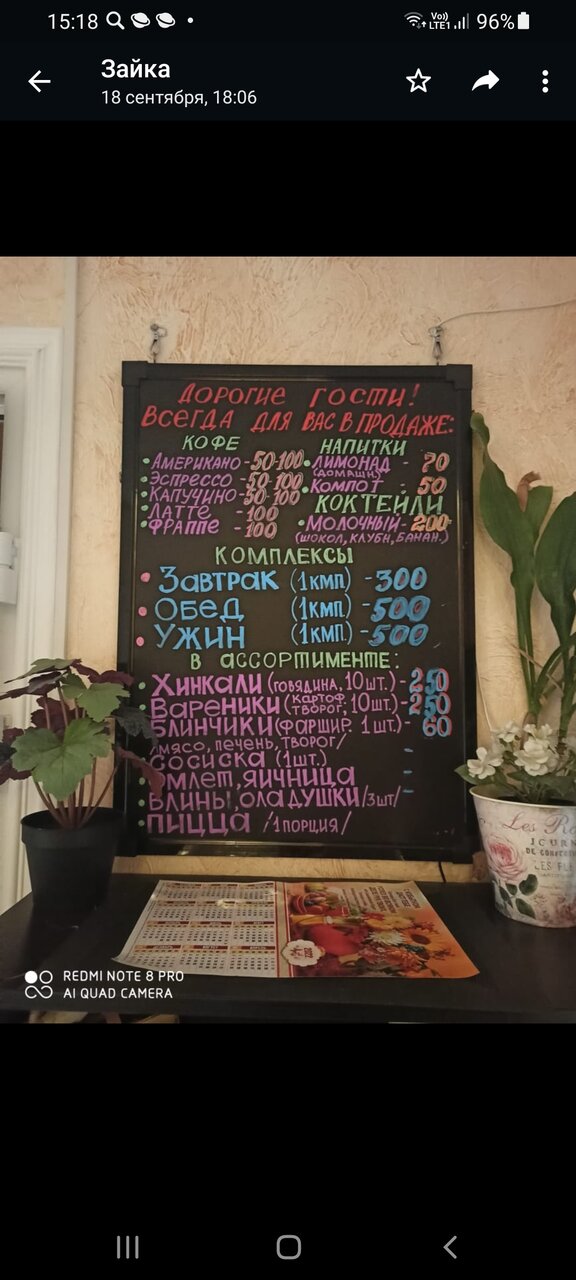 15:18
Vo))
LTE1
96%
Зайка
18 сентября, 18:06
ДОРОГИЕ ГОСТИ!
ВСЕГДА ДЛЯ ВАС В ПРОДАЖЕ:
КОФЕ
• АМЕРИКАНО - 50-100
• ЭСПРЕССО - 50-100
КАПУЧИНО - 50-100
• ЛАТТЕ - 100
• ФРАППЕ - 100
НАПИТКИ
• ЛИМОНАД - 70
(ДОМАШН.)
• КОМПОТ - 50
КОКТЕЙЛИ
• МОЛОЧНЫЙ - 200
(ШОКОЛ, КЛУБН, БАНАН.)
КОМПЛЕКСЫ
• Завтрак (1 КМП) - 300
• ОБЕД (1 КМП) - 500
• УЖИН (1 КМП.) - 500
В АССОРТИМЕНТЕ:
• Хинкали (говядина, 10 шт.) - 250
• Вареники (картоф, творог, 10 шт.) - 250
Блинчики (фаршир. 1 шт.) - 60
/мясо, печень, творог/
Сосиска (1 шт.) -
Омлет, яичница -
• Блины, оладушки /3 шт/ -
• Пицца /1 порция/
REDMI NOTE 8 PRO
AI QUAD CAMERA